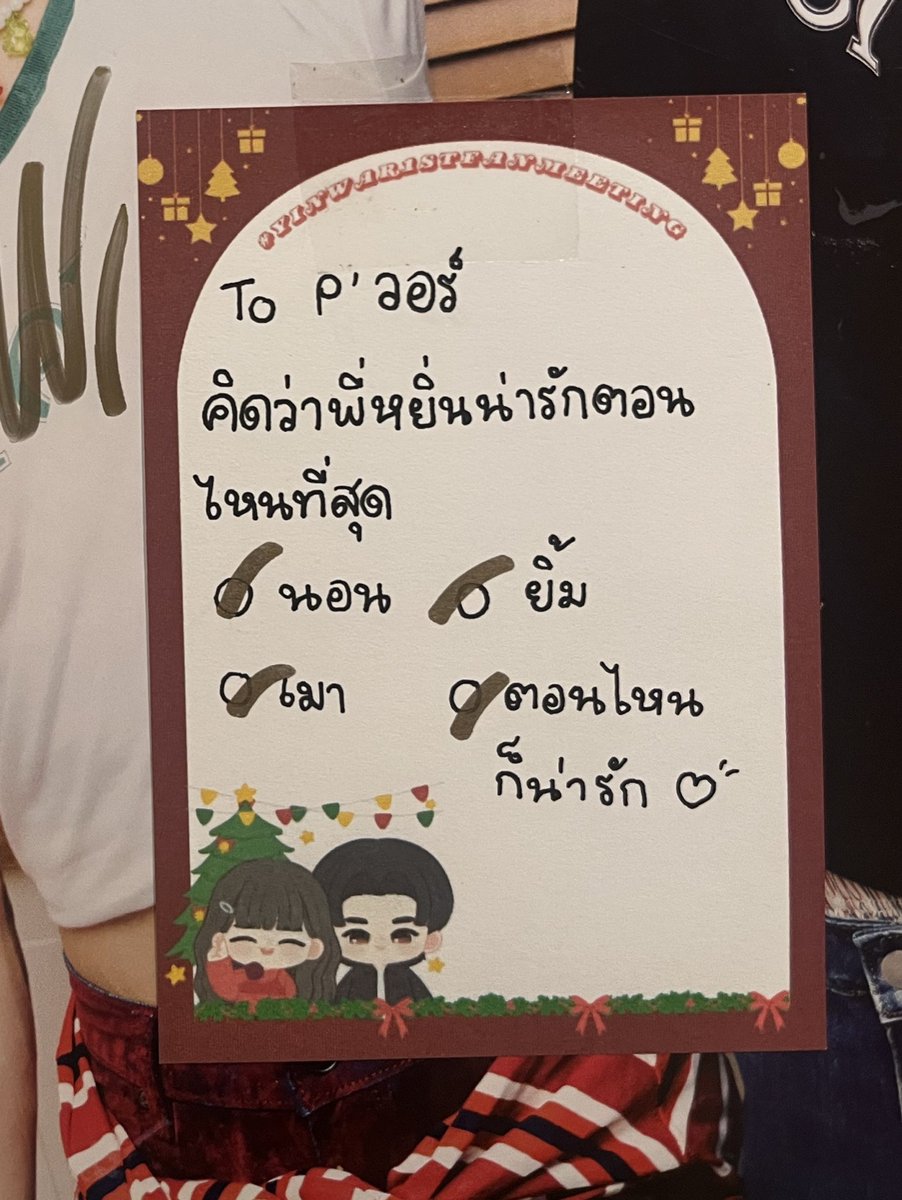 #YINWAR1STFANMEETING
To P'วอร์
คิดว่าพี่หยิ่นน่ารักตอน
ไหนที่สุด
นอน ยิ้ม
เมา ตอนไหน
ก็น่ารัก